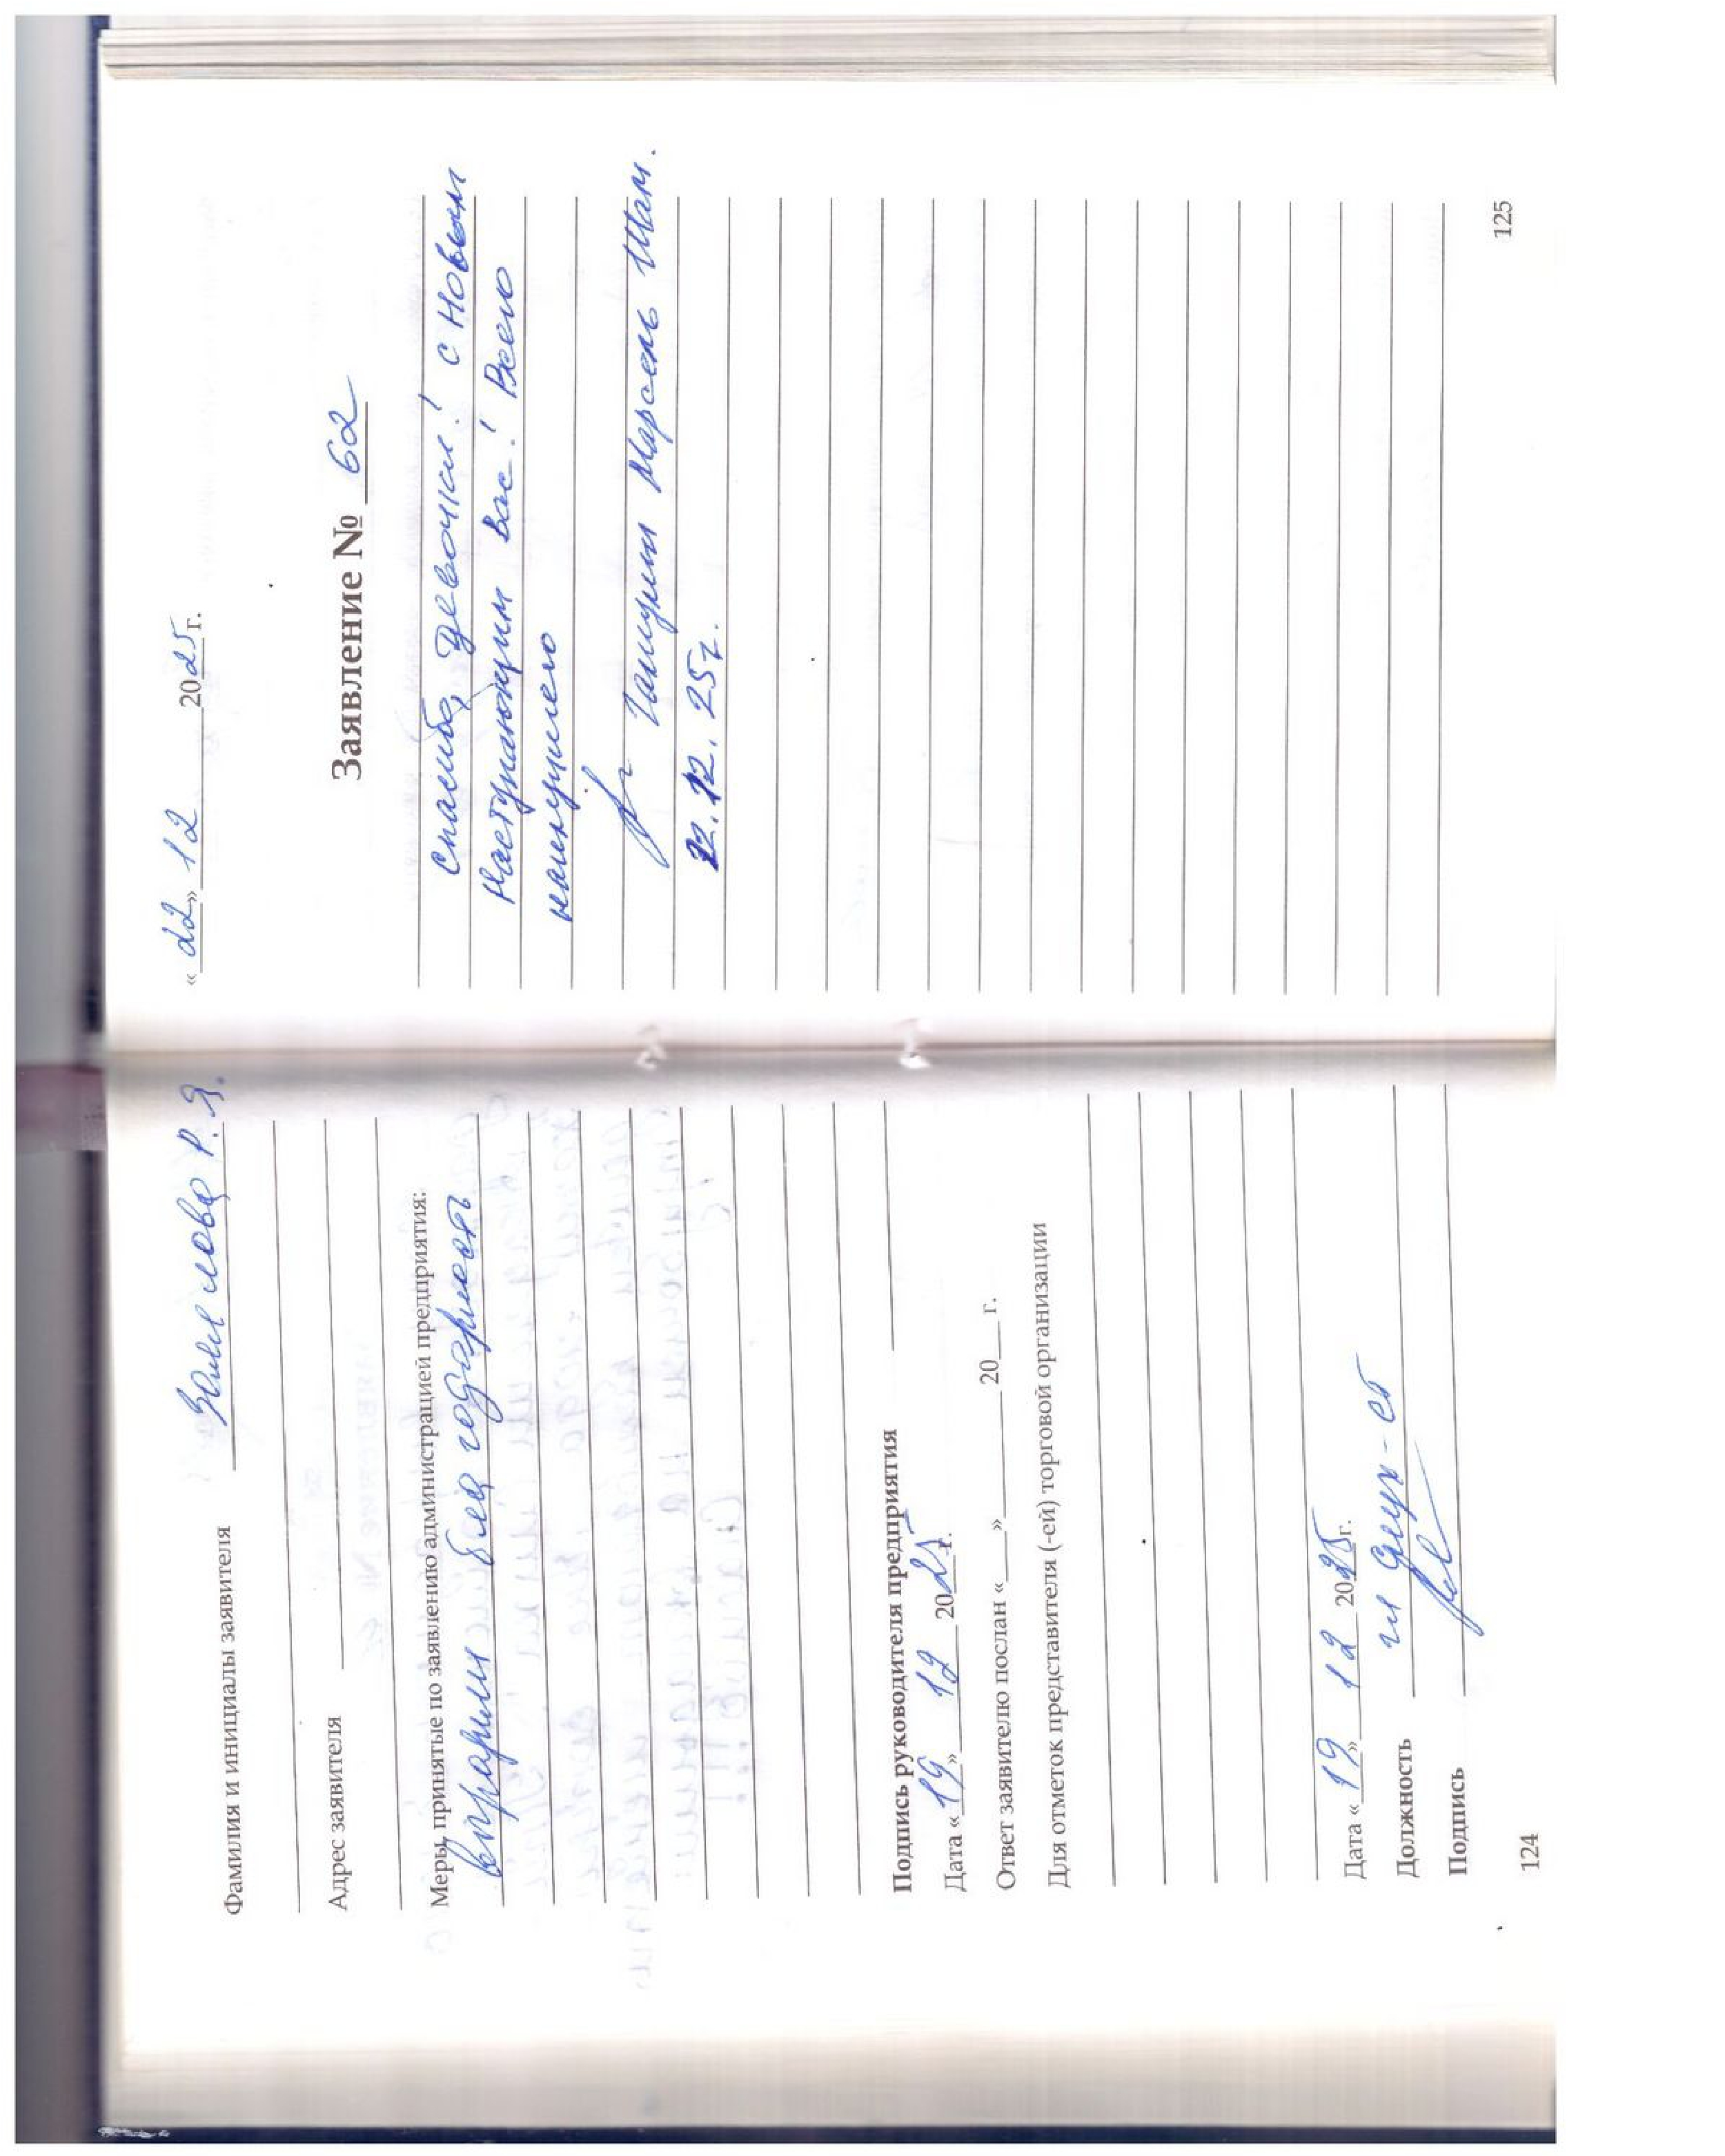 Фамилия и инициалы заявителя Р. Я.
Адрес заявителя
Меры, принятые по заявлению администрацией предприятия:
выразили благодарность
Подпись руководителя предприятия
Дата «19» 12 2025 г.
Ответ заявителю послан «___» ________ 20___ г.
Для отметок представителя (-ей) торговой организации
Дата «19» 12 2025 г.
Должность
Подпись
124
«22» 12 2025 г.
Заявление № 62
Спасибо, девочки! С Новым
Наступающим Вас! Всего
наилучшего
Марсель Шам.
22.12.25г.
125